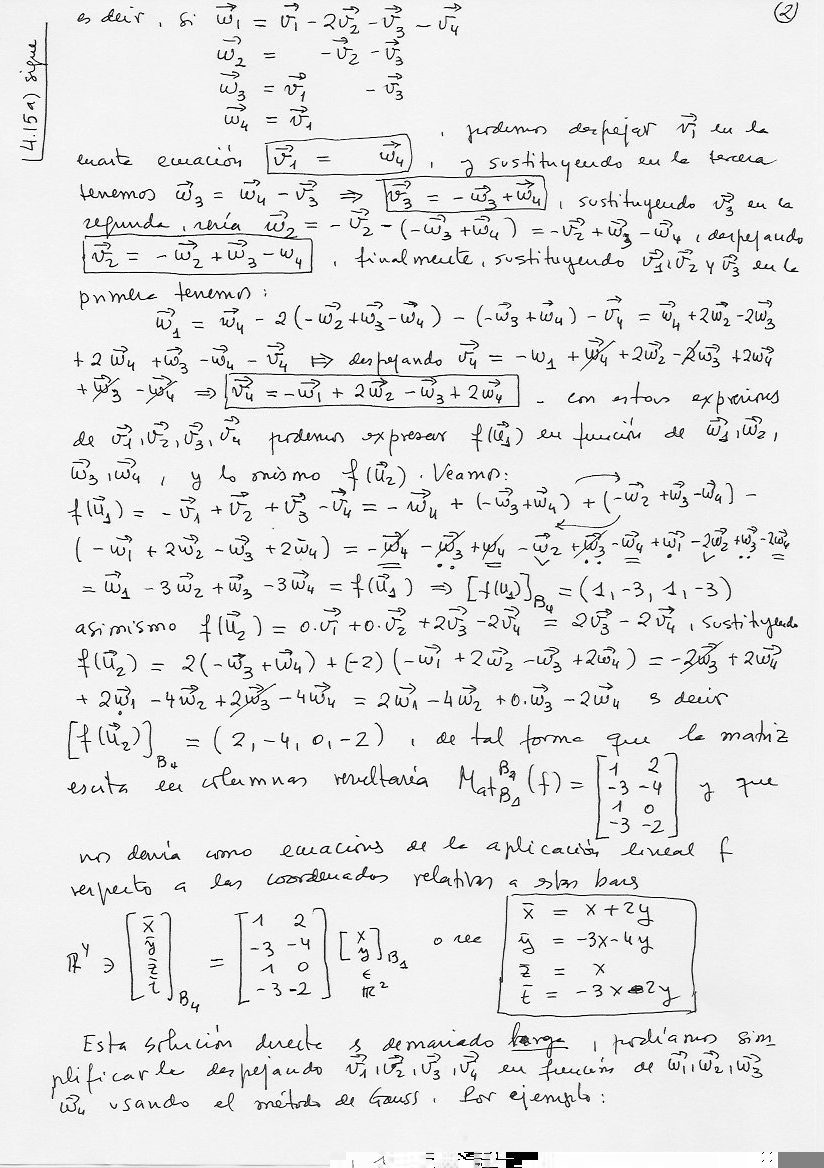 ②
4.15a) sigue
es decir, si $\vec{w_1} = \vec{v_1} - 2\vec{v_2} - \vec{v_3} - \vec{v_4}$
$\vec{w_2} = -\vec{v_2} - \vec{v_3}$
$\vec{w_3} = \vec{v_1} - \vec{v_3}$
$\vec{w_4} = \vec{v_1}$
, podemos despejar $\vec{v_1}$ en la
cuarta ecuación $\vec{v_1} = \vec{w_4}$, y sustituyendo en la tercera
tenemos $\vec{w_3} = \vec{w_4} - \vec{v_3} \Rightarrow \vec{v_3} = -\vec{w_3} + \vec{w_4}$, sustituyendo $\vec{v_3}$ en la
segunda, sería $\vec{w_2} = -\vec{v_2} - (-\vec{w_3} + \vec{w_4}) = -\vec{v_2} + \vec{w_3} - \vec{w_4}$, despejando
$\vec{v_2} = -\vec{w_2} + \vec{w_3} - w_4$, finalmente, sustituyendo $\vec{v_1}, \vec{v_2}$ y $\vec{v_3}$ en la
primera tenemos:
$\vec{w_1} = \vec{w_4} - 2(-\vec{w_2} + \vec{w_3} - \vec{w_4}) - (-\vec{w_3} + \vec{w_4}) - \vec{v_4} = \vec{w_4} + 2\vec{w_2} - 2\vec{w_3}$
$+ 2\vec{w_4} + \vec{w_3} - \vec{w_4} - \vec{v_4} \Rightarrow$ despejando $\vec{v_4} = -w_1 + \vec{w_4} + 2\vec{w_2} - 2\vec{w_3} + 2\vec{w_4}$
$+ \vec{w_3} - \vec{w_4} \Rightarrow \vec{v_4} = -\vec{w_1} + 2\vec{w_2} - \vec{w_3} + 2\vec{w_4}$ - con estas expresiones
de $\vec{v_1}, \vec{v_2}, \vec{v_3}, \vec{v_4}$ podemos expresar $f(\vec{u_1})$ en función de $\vec{w_1}, \vec{w_2},$
$\vec{w_3}, \vec{w_4}$, y lo mismo $f(\vec{u_2})$. Veamos:
$f(\vec{u_1}) = -\vec{v_1} + \vec{v_2} + \vec{v_3} - \vec{v_4} = -\vec{w_4} + (-\vec{w_3} + \vec{w_4}) + (-\vec{w_2} + \vec{w_3} - \vec{w_4}) -$
$(-\vec{w_1} + 2\vec{w_2} - \vec{w_3} + 2\vec{w_4}) = -\vec{w_4} - \vec{w_3} + \vec{w_4} - \vec{w_2} + \vec{w_3} - \vec{w_4} + \vec{w_1} - 2\vec{w_2} + \vec{w_3} - 2\vec{w_4}$
$= \vec{w_1} - 3\vec{w_2} + \vec{w_3} - 3\vec{w_4} = f(\vec{u_1}) \Rightarrow [f(u_1)]_{B_4} = (1, -3, 1, -3)$
asimismo $f(\vec{u_2}) = 0 \cdot \vec{v_1} + 0 \cdot \vec{v_2} + 2\vec{v_3} - 2\vec{v_4} = 2\vec{v_3} - 2\vec{v_4}$, sustituyendo
$f(\vec{u_2}) = 2(-\vec{w_3} + \vec{w_4}) + (-2)(-\vec{w_1} + 2\vec{w_2} - \vec{w_3} + 2\vec{w_4}) = -2\vec{w_3} + 2\vec{w_4}$
$+ 2\vec{w_1} - 4\vec{w_2} + 2\vec{w_3} - 4\vec{w_4} = 2\vec{w_1} - 4\vec{w_2} + 0 \cdot \vec{w_3} - 2\vec{w_4}$ es decir
$[f(\vec{u_2})]_{B_4} = (2, -4, 0, -2)$, de tal forma que la matriz
escrita en columnas resultaría $Mat_{B_1}^{B_4}(f) = \begin{bmatrix} 1 & 2 \\ -3 & -4 \\ 1 & 0 \\ -3 & -2 \end{bmatrix}$ y que
nos daría como ecuaciones de la aplicación lineal f
respecto a las coordenadas relativas a estas bases
$\mathbb{R}^4 \ni \begin{bmatrix} \bar{x} \\ \bar{y} \\ \bar{z} \\ \bar{t} \end{bmatrix}_{B_4} = \begin{bmatrix} 1 & 2 \\ -3 & -4 \\ 1 & 0 \\ -3 & -2 \end{bmatrix} \begin{bmatrix} x \\ y \end{bmatrix}_{B_1} \in \mathbb{R}^2$ o sea $\bar{x} = x + 2y$
$\bar{y} = -3x - 4y$
$\bar{z} = x$
$\bar{t} = -3x - 2y$
Esta solución directa es demasiado larga, podíamos sim
plificarla despejando $\vec{v_1}, \vec{v_2}, \vec{v_3}, \vec{v_4}$ en función de $\vec{w_1}, \vec{w_2}, \vec{w_3}$
$\vec{w_4}$ usando el método de Gauss. Por ejemplo: